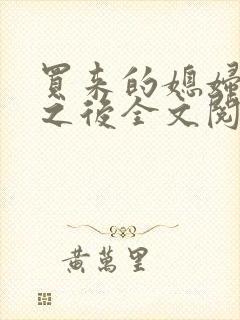 買来的媳婦
之後全文閱
黃萬里